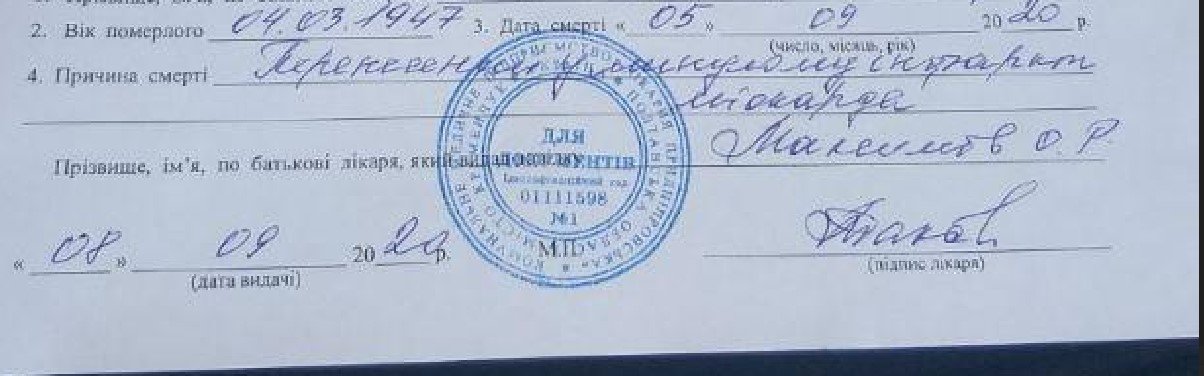 2. Вік померлого 04.03.1947 3. Дата смерті « 05 » 09 2020 р.
(число, місяць, рік)
4. Причина смерті Перенесений у минулому інфаркт
міокарда
Прізвище, ім’я, по батькові лікаря, який видав О. Р.
ДЛЯ
ДОКУМЕНТІВ
Ідентифікаційний код
01111598
№1
М.П.
« 08 » 09 2020 р.
(дата видачі)
(підпис лікаря)